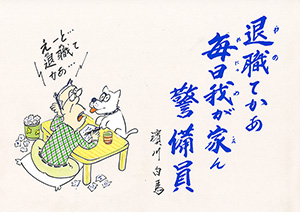 退職てかあ
毎日我が家ん
警備員
えーと…
退職て
かあ…
濱川 白馬